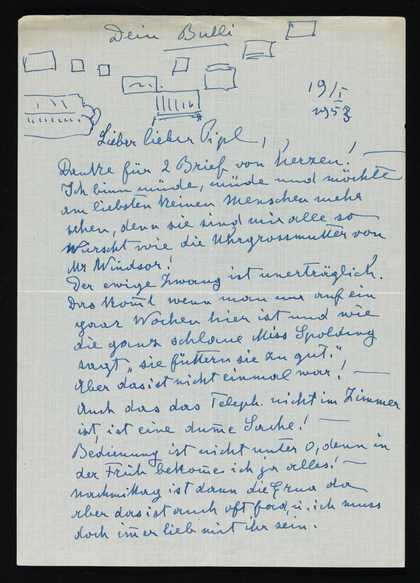 Dein Bulli
19/I
1953
Lieber lieber Pipl,
Danke für 2 Brief von Herzen! —
Ich binn müde, müde und möchte
am liebsten keinen Menschen mehr
sehen, denn sie sind mir alle so
Wurscht wie die Uhrgrossmutter von
Mr Windsor!
Der ewige Zwang ist unerträglich.
Das kommt wenn man nur auf ein
paar Wochen hier ist und wie
die ganz schlaue Miss Spolding
sagt „sie füttern sie zu gut."
Aber das ist nicht einmal war! —
Auch das das Teleph. nicht im Zimmer
ist, ist eine dume Sache! —
Bedienung ist nicht unter 0, denn in
der Früh bekome ich ja alles! —
Nachmittag ist dann die Erna da
aber das ist auch oft fad, u. ich muss
doch imer lieb mit ihr sein.